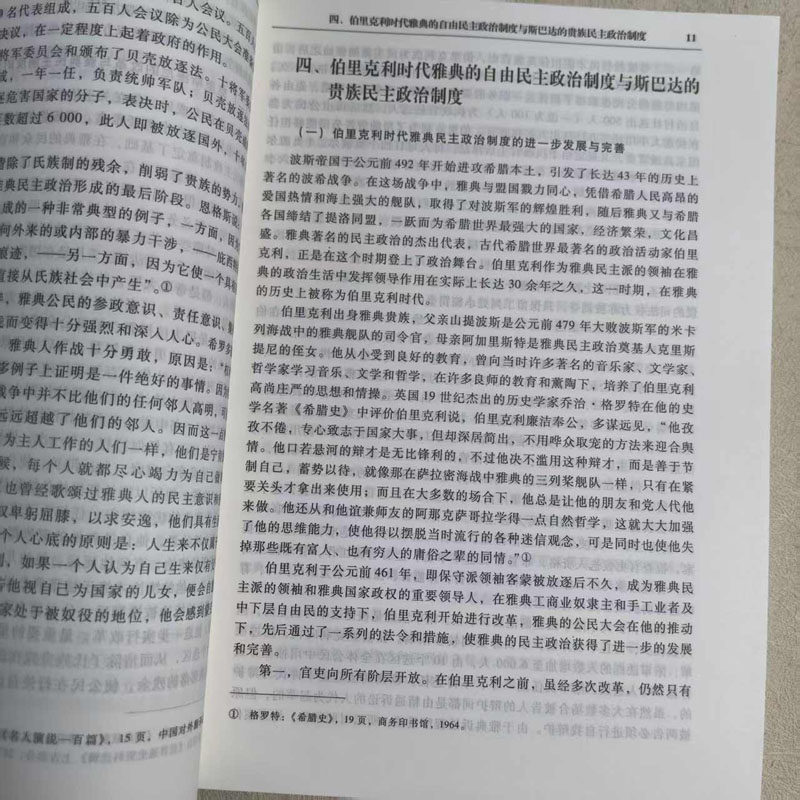 9 名代表组成，五百人会议除为公民大会
决议，在一定程度上起着政府的作用。
将军委员会和颁布了贝壳放逐法。十将军
，一年一任，负责统帅军队；贝壳放逐
危害国家的分子，表决时，公民在贝壳
数超过 6 000，此人即被放逐国外，十年
除了氏族制的残余，削弱了贵族的势力
典民主政治形成的最后阶段。恩格斯
成的一种非常典型的例子，一方面，因
何外来的或内部的暴力干涉，——庇西
痕迹，——另一方面，因为它使一个具
直接从氏族社会中产生”。①
，雅典公民的参政意识、责任意识、
我而变得十分强烈和深入人心。希罗
雅典人作战十分勇敢，原因是：“
多例子上证明是一件绝好的事情。因
战争中并不比他们的任何邻人高明，可
远远超越了他们的邻人。因而这一
为主人工作的人们一样，他们是宁
候，每个人就都尽心竭力为自己
也曾经歌颂过雅典人的民主意识
奴卑躬屈膝，以求安逸，他们具有
个人心底的原则是：人生来不仅
，如果一个人认为自己生来仅
他视自己为国家的儿女，便会
家处于被奴役的地位，他会感到
《名人演说一百篇》，15 页，中国对外
四、伯里克利时代雅典的自由民主政治制度与斯巴达的贵族民主政治制度 11
四、伯里克利时代雅典的自由民主政治制度与斯巴达的
贵族民主政治制度
（一）伯里克利时代雅典民主政治制度的进一步发展与完善
波斯帝国于公元前 492 年开始进攻希腊本土，引发了长达 43 年的历史上
著名的波希战争。在这场战争中，雅典与盟国戮力同心，凭借希腊人民高昂的
爱国热情和海上强大的舰队，取得了对波斯军的辉煌胜利，随后雅典又与希腊
各国缔结了提洛同盟，一跃而为希腊世界最强大的国家，经济繁荣，文化昌
盛。雅典著名的民主政治的杰出代表，古代希腊世界最著名的政治活动家伯里
克利，正是在这个时期登上了政治舞台。伯里克利作为雅典民主派的领袖在雅
典的政治生活中发挥领导作用在实际上长达 30 余年之久，这一时期，在雅典
的历史上被称为伯里克利时代。
伯里克利出身雅典贵族，父亲山提波斯是公元前 479 年大败波斯军的米卡
列海战中的雅典舰队的司令官，母亲阿加里斯特是雅典民主政治奠基人克里斯
提尼的侄女。他从小受到良好的教育，曾向当时许多著名的音乐家、文学家、
哲学家学习音乐、文学和哲学，在许多良师的教育和薰陶下，培养了伯里克利
高尚庄严的思想和情操。英国 19 世纪杰出的历史学家乔治·格罗特在他的史
学名著《希腊史》中评价伯里克利说，伯里克利廉洁奉公，多谋远见，“他孜
孜不倦，专心致志于国家大事，但却深居简出，不用哗众取宠的方法来迎合舆
情。他口若悬河的辩才是无比锋利的，不过他决不滥用这种辩才，而是善于节
制自己，蓄势以待，就像那在萨拉密海战中雅典的三列桨舰队一样，只有在紧
要关头才拿出来使用；而且在大多数的场合下，他总是让他的朋友和党人代他
来做。他还从和他谊兼师友的阿那克萨哥拉学得一点自然哲学，这就大大加强
了他的思维能力，使他得以摆脱当时流行的各种迷信观念，可是同时也使他失
掉那些既有富人、也有穷人的庸俗之辈的同情。”①
伯里克利于公元前 461 年，即保守派领袖客蒙被放逐后不久，成为雅典民
主派的领袖和雅典国家政权的重要领导人，在雅典工商业奴隶主和手工业者及
中下层自由民的支持下，伯里克利开始进行改革，雅典的公民大会在他的推动
下，先后通过了一系列的法令和措施，使雅典的民主政治获得了进一步的发展
和完善。
第一，官吏向所有阶层开放。在伯里克利之前，虽经多次改革，仍然只有
① 格罗特：《希腊史》，19 页，商务印书馆，1964。